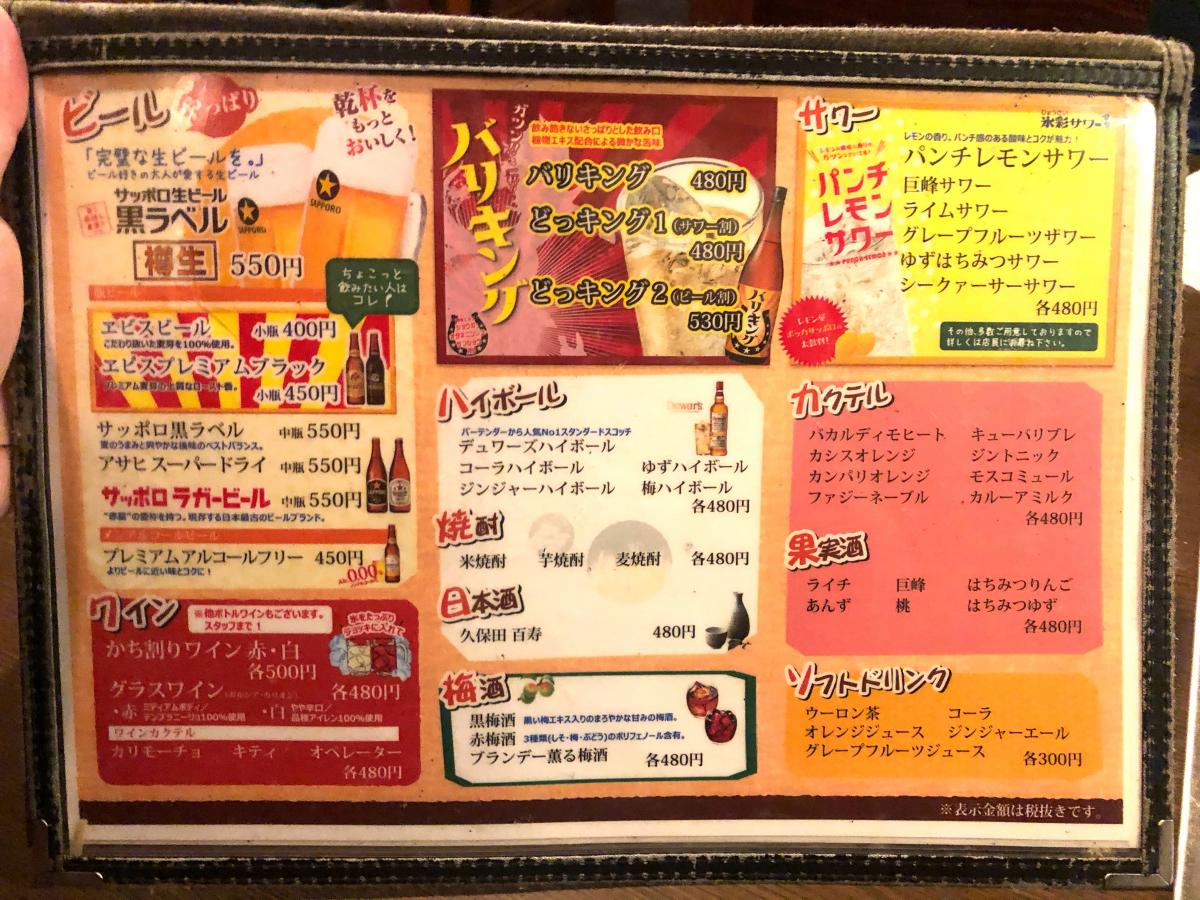 ビール
やっぱり
乾杯を
もっと
おいしく!
「完璧な生ビールを。」
ビール好きの大人が愛する生ビール
サッポロ生ビール
黒ラベル
樽生 550円
SAPPORO
SAPPORO
ちょこっと
飲みたい人は
コレ!
ヱビスビール 小瓶 400円
こだわり抜いた麦芽を100%使用。
ヱビスプレミアムブラック
プレミアム麦芽の上質なロースト香。
小瓶 450円
サッポロ黒ラベル 中瓶 550円
麦のうまみと爽やかな後味のベストバランス。
アサヒ スーパードライ 中瓶 550円
サッポロ ラガービール 中瓶 550円
"赤星"の愛称を持つ。現存する日本最古のビールブランド。
ノンアルコールビール
プレミアムアルコールフリー 450円
よりビールに近い味とコクに!
Alc.0.00%
ワイン
※他ボトルワインもございます。
スタッフまで!
氷をたっぷり
ジョッキに入れて
かち割りワイン 赤・白
各500円
グラスワイン 各480円
・赤 ミディアムボディ/
テンプラニーリョ100%使用
・白 やや辛口/
品種アイレン100%使用
ワインカクテル
カリモーチョ キティ オペレーター
各480円
バリキング
飲み飽きないさっぱりとした飲み口
植物エキス配合による微かな苦味
バリキング 480円
どっキング1(サワー割)
480円
どっキング2(ビール割)
530円
バリキング
ハイボール
Dewar's
バーテンダーから人気No1スタンダードスコッチ
デュワーズハイボール
コーラハイボール ゆずハイボール
ジンジャーハイボール 梅ハイボール
各480円
焼酎
米焼酎 芋焼酎 麦焼酎 各480円
日本酒
久保田 百寿 480円
梅酒
黒梅酒 黒い梅エキス入りのまろやかな甘みの梅酒。
赤梅酒 3種類(しそ・梅・ぶどう)のポリフェノール含有。
ブランデー薫る梅酒 各480円
サワー
氷彩サワー
レモンの香り、パンチ感のある酸味とコクが魅力!
パンチレモンサワー
パンチ
レモン
サワー
巨峰サワー
ライムサワー
グレープフルーツサワー
ゆずはちみつサワー
シークァーサーサワー
各480円
レモン屋
ポッカサッポロの
太鼓判!
その他、多数ご用意しておりますので
詳しくは店員にお尋ね下さい。
カクテル
バカルディモヒート キューバリブレ
カシスオレンジ ジントニック
カンパリオレンジ モスコミュール
ファジーネーブル カルーアミルク
各480円
果実酒
ライチ 巨峰 はちみつりんご
あんず 桃 はちみつゆず
各480円
ソフトドリンク
ウーロン茶 コーラ
オレンジジュース ジンジャーエール
グレープフルーツジュース 各300円
※表示金額は税抜きです。